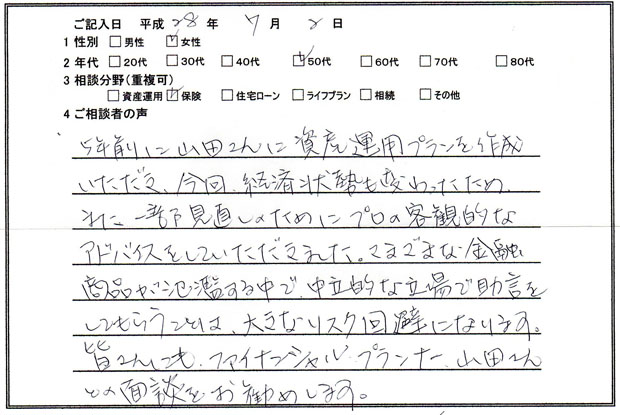 ご記入日 平成 28 年 7 月 2 日
1 性別 □男性 ☑女性
2 年代 □20代 □30代 □40代 ☑50代 □60代 □70代 □80代
3 相談分野(重複可)
□資産運用 ☑保険 □住宅ローン □ライフプラン □相続 □その他
4 ご相談者の声
5年前に山田さんに資産運用プランを作成
いただき、今回、経済状勢も変わったため、
また一部見直しのためにプロの客観的な
アドバイスをしていただきました。さまざまな金融
商品が氾濫する中で、中立的な立場で助言を
してもらうことは、大きなリスク回避になります。
皆さんにも、ファイナンシャル プランナー、山田さん
との面談をお勧めします。